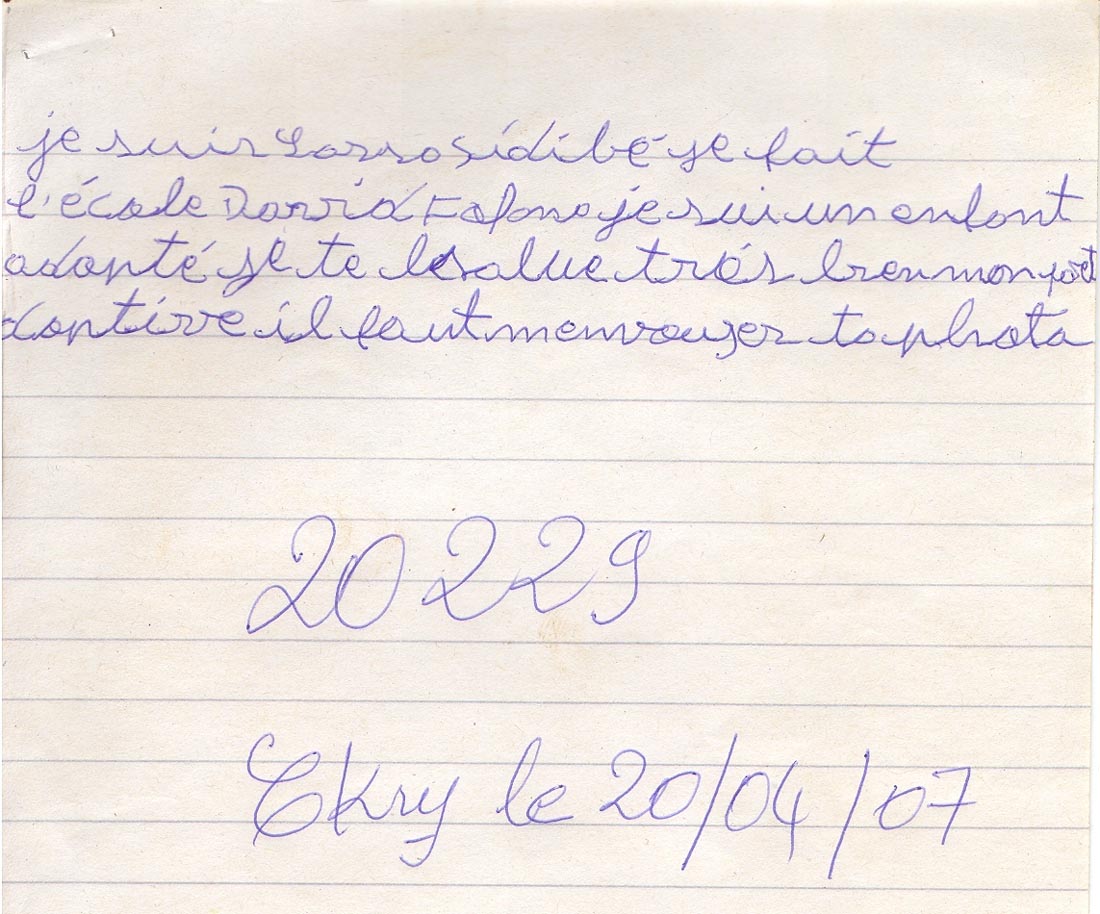 je suis Lasso sidibé je fait
l'école David Fofono je suiunenfant
adapté je te le salue trás bienmon
doptive il fautmenvouyer ta phota
20229
le 20/04/07